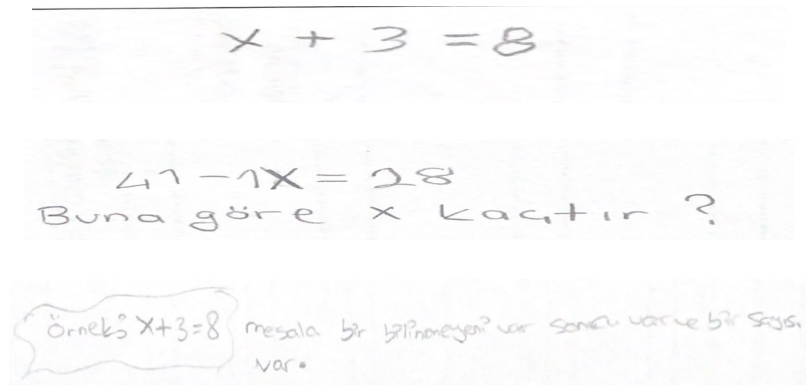 x + 3 = 8
41 - 1X = 28
Buna göre x kaçtır ?
Örnek: X+3=8 mesala bir bilinmeyeni var sonucu var ve bir sayısı
var.